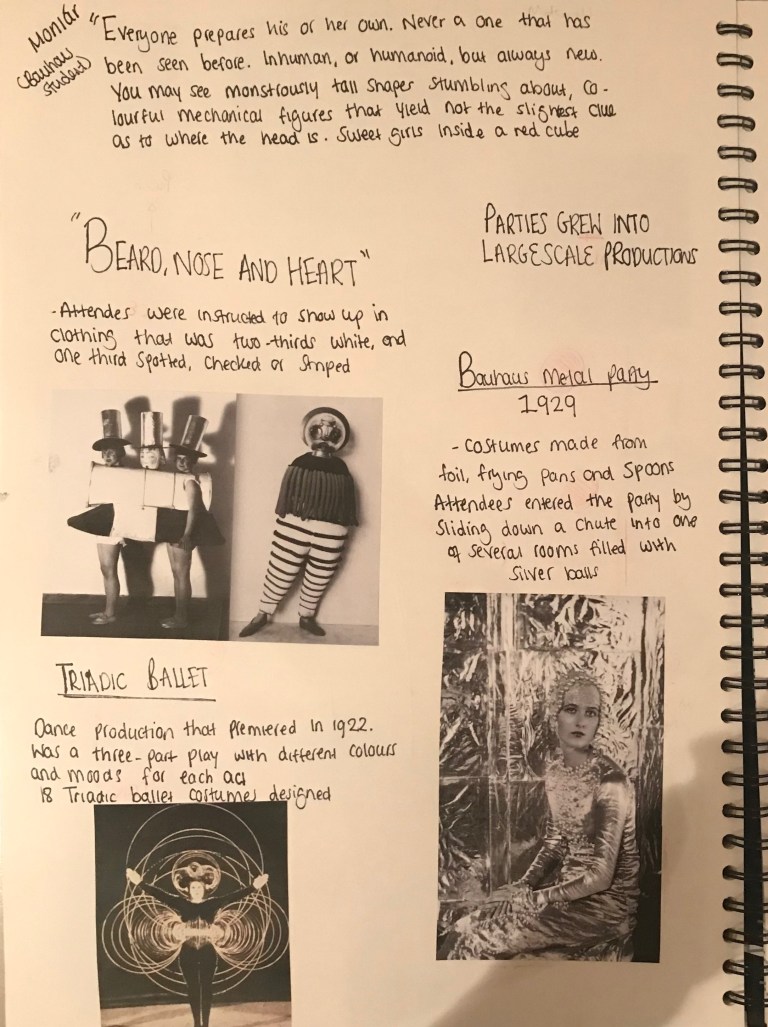 Monlár
(Bauhaus
student)
"Everyone prepares his or her own. Never a one that has
been seen before. Inhuman, or humanoid, but always new.
You may see monstrously tall shapes stumbling about, co-
lourful mechanical figures that yield not the slightest clue
as to where the head is. Sweet girls inside a red cube
"BEARD, NOSE AND HEART"
-Attendes were instructed to show up in
clothing that was two-thirds white, and
one third spotted, checked or striped
PARTIES GREW INTO
LARGESCALE PRODUCTIONS
Bauhaus Metal Party
1929
- costumes made from
foil, frying pans and spoons
Attendees entered the party by
sliding down a chute into one
of several rooms filled with
silver balls
TRIADIC BALLET
Dance production that premiered in 1922.
Was a three-part play with different colours
and moods for each act
18 Triadic ballet costumes designed